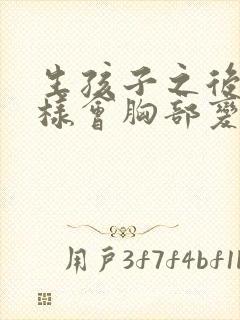 生孩子之後
樣會胸部變
用戶3f7f4bf1